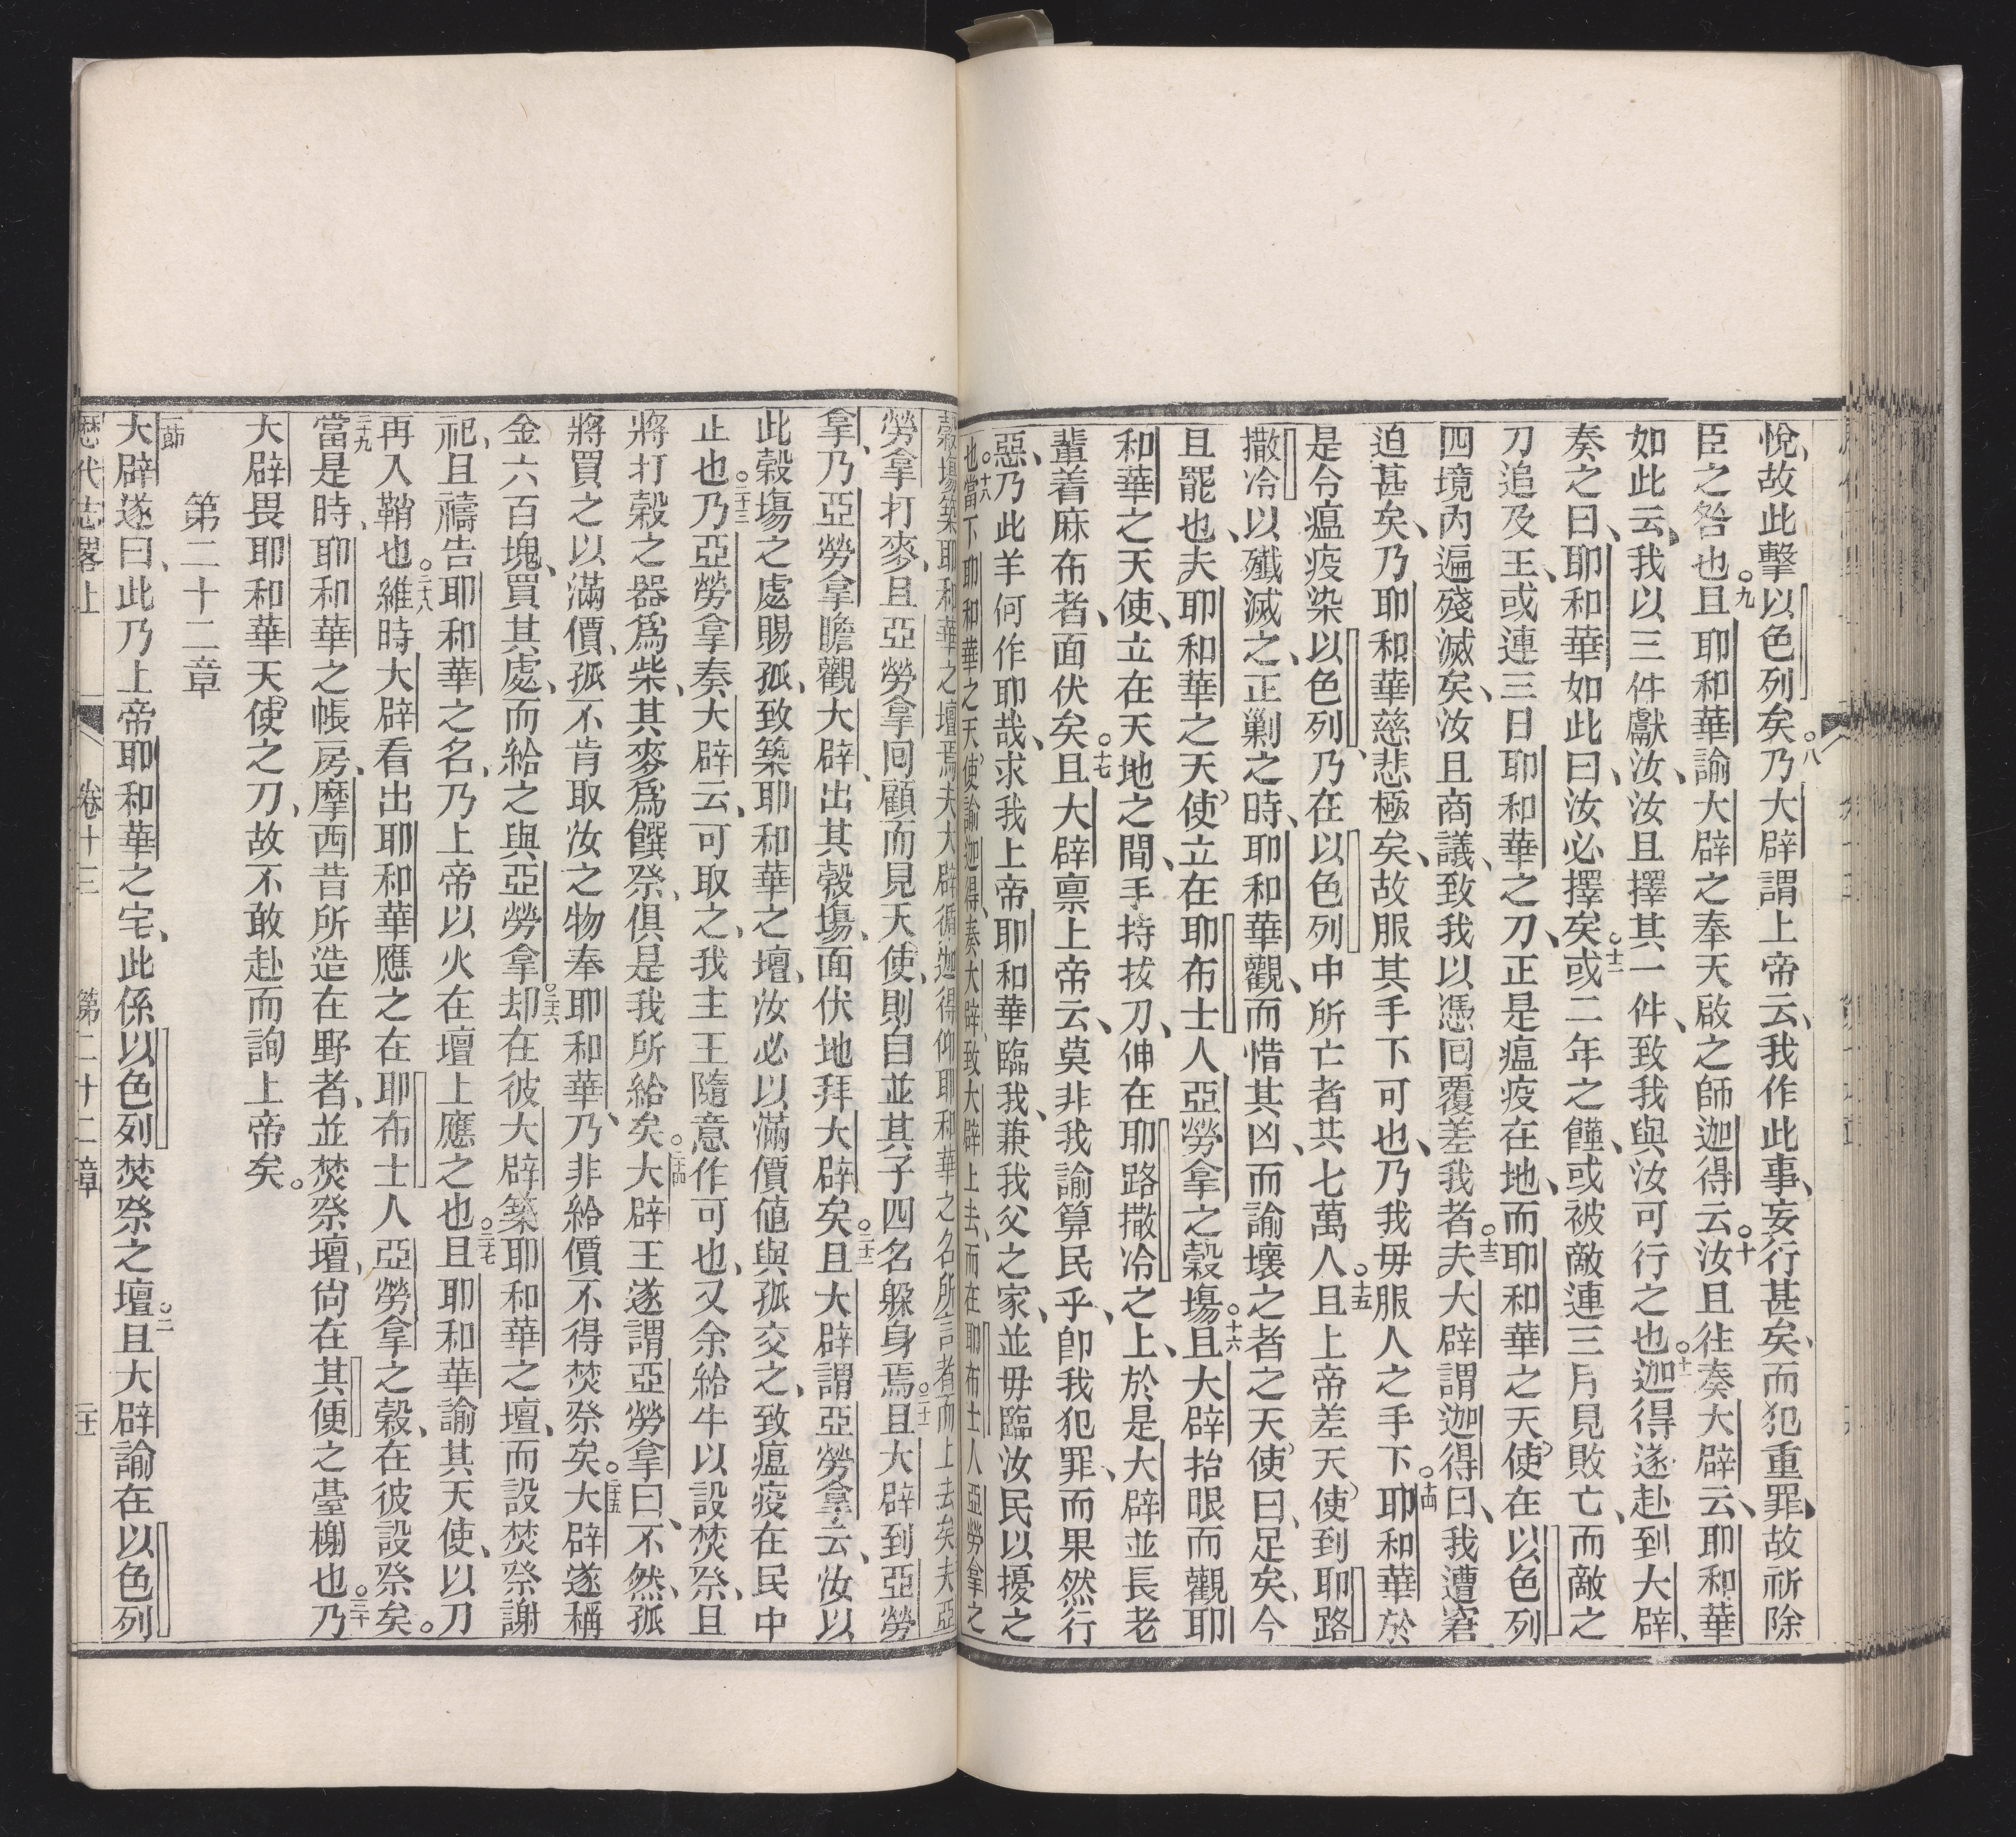 悅、故此擊以色列矣○八乃大辟謂上帝云、我作此事、妄行甚矣、而犯重罪、故祈除
臣之咎也○九且耶和華諭大辟之奉天啟之師迦得云○十汝且往奏大辟云、耶和華
如此云、我以三件獻汝、汝且擇其一件、致我與汝可行之也○十一迦得遂赴到大辟、
奏之曰、耶和華如此曰、汝必擇矣○十二或二年之饉、或被敵連三月見敗亡、而敵之
刀追及王、或連三日耶和華之刀、正是瘟疫在地、而耶和華之天使在以色列
四境內遍殘滅矣、汝且商議、致我以憑回覆差我者○十三夫大辟謂迦得曰、我遭窘
迫甚矣、乃耶和華慈悲極矣、故服其手下可也、乃我毋服人之手下○十四耶和華於
是令瘟疫染以色列、乃在以色列中所亡者共七萬人○十五且上帝差天使到耶路
撒冷以殲滅之、正剿之時、耶和華觀、而惜其凶、而諭壞之者之天使曰、足矣、今
且罷也、夫耶和華之天使立在耶布士人亞勞拿之穀場○十六且大辟抬眼而觀耶
和華之天使、立在天地之間、手持拔刀、伸在耶路撒冷之上、於是大辟並長老
輩着麻布者、面伏矣○十七且大辟禀上帝云、莫非我諭算民乎、卽我犯罪、而果然行
惡、乃此羊何作耶哉、求我上帝耶和華臨我、兼我父之家、並毋臨汝民以擾之
也○十八當下耶和華之天使諭迦得、奏大辟、致大辟上去、而在耶布士人亞勞拿之
穀場築耶和華之壇焉夫大辟循迦得仰耶和華之名所言者而上去矣夫亞
勞拿打麥、且亞勞拿回顧而見天使、則自並其子四名躲身焉○二十一且大辟到亞勞
拿、乃亞勞拿瞻觀大辟、出其穀場、面伏地拜大辟矣○二十二且大辟謂亞勞拿云、汝以
此穀場之處賜孤、致築耶和華之壇、汝必以滿價值與孤交之、致瘟疫在民中
止也○二十三乃亞勞拿奏大辟云、可取之、我主王隨意作可也、又余給牛以設焚祭、且
將打穀之器為柴、其麥為饌祭、俱是我所給矣○二十四大辟王遂謂亞勞拿曰、不然、孤
將買之以滿價、孤不肯取汝之物奉耶和華、乃非給價不得焚祭矣○二十五大辟遂稱
金六百塊、買其處、而給之與亞勞拿○二十六却在彼大辟築耶和華之壇、而設焚祭謝
祀、且禱告耶和華之名、乃上帝以火在壇上應之也○二十七且耶和華諭其天使、以刀
再入鞘也○二十八維時大辟看出耶和華應之在耶布士人亞勞拿之穀、在彼設祭矣。
二十九當是時、耶和華之帳房、摩西昔所造在野者、並焚祭壇、尙在其便之臺榭也○三十乃
大辟畏耶和華天使之刀、故不敢赴而詢上帝矣。
第二十二章
一節大辟遂曰、此乃上帝耶和華之宅、此係以色列焚祭之壇○二且大辟諭在以色列
歷代志畧上 卷十三 第二十二章 二十